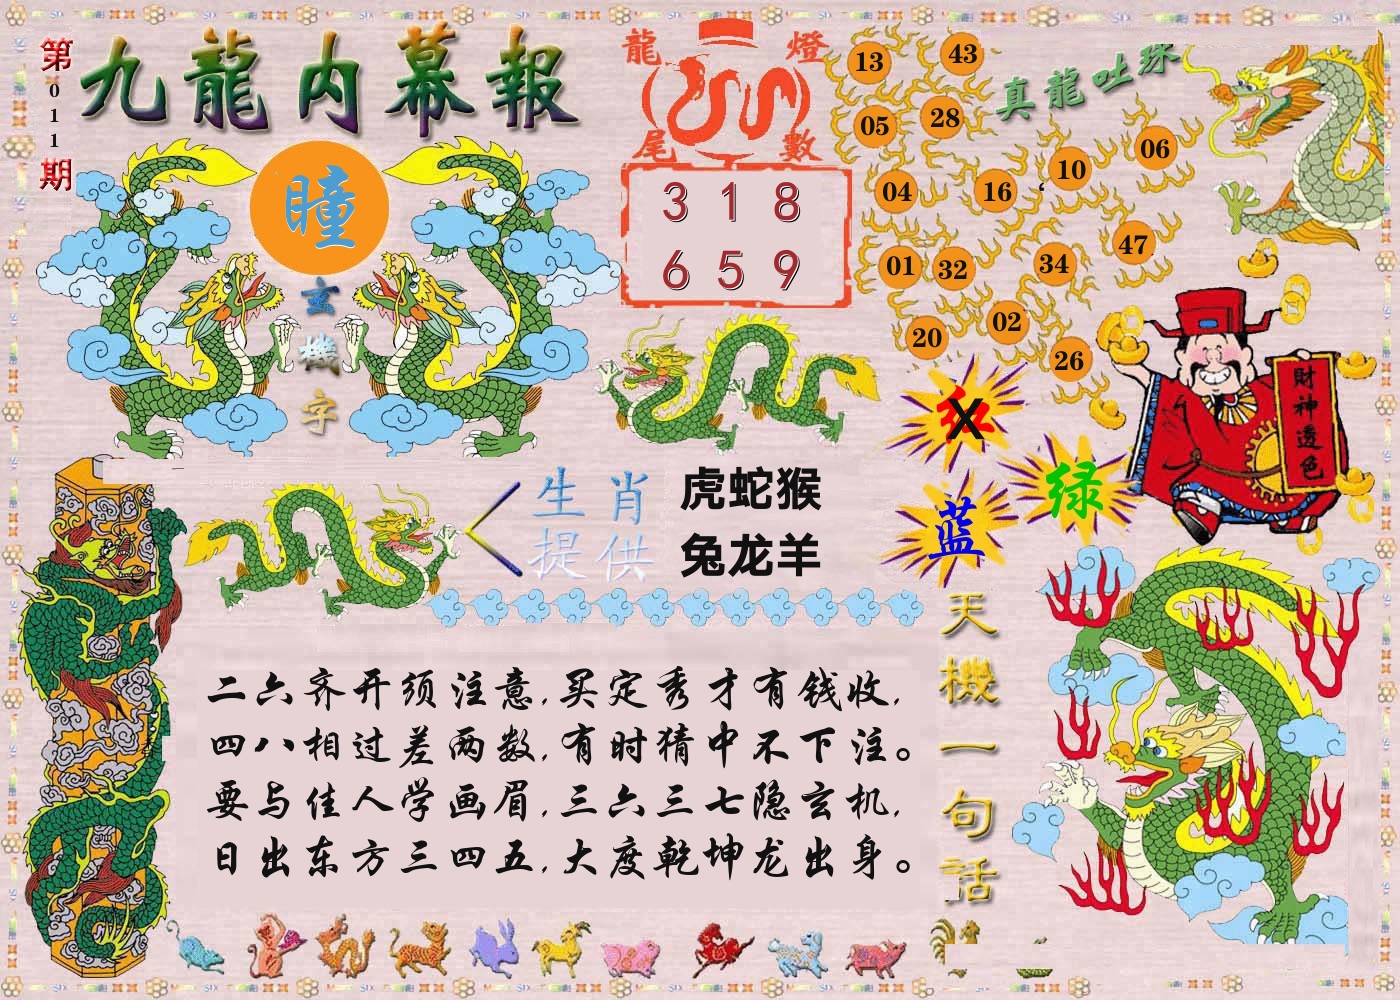 第011期
九龍内幕報
瞳
玄機字
龍燈
尾數
3 1 8
6 5 9
真龍吐珠
13 43
05 28
04 16 10 06
01 32 34 47
20 02 26
財神透色
红 X
绿
蓝
生肖
提供
虎蛇猴
兔龙羊
二六齐开须注意,买定秀才有钱收,
四八相过差两数,有时猜中不下注。
要与佳人学画眉,三六三七隐玄机,
日出东方三四五,大度乾坤龙出身。
天機一句話